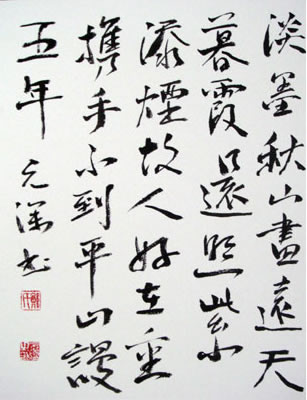 淡墨秋山畫遠天
暮霞還照紫
添煙故人好在重
携手不到平山謾
五年
元 书